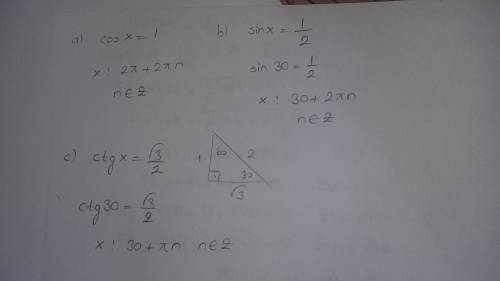 a) cos x = 1
x : 2π + 2πn
n ∈ Z
b) sin x = 1/2
sin 30 = 1/2
x : 30 + 2πn
n ∈ Z
c) ctg x = √3/2
1 60 2
30
√3
ctg 30 = √3/2
x : 30 + πn n ∈ Z